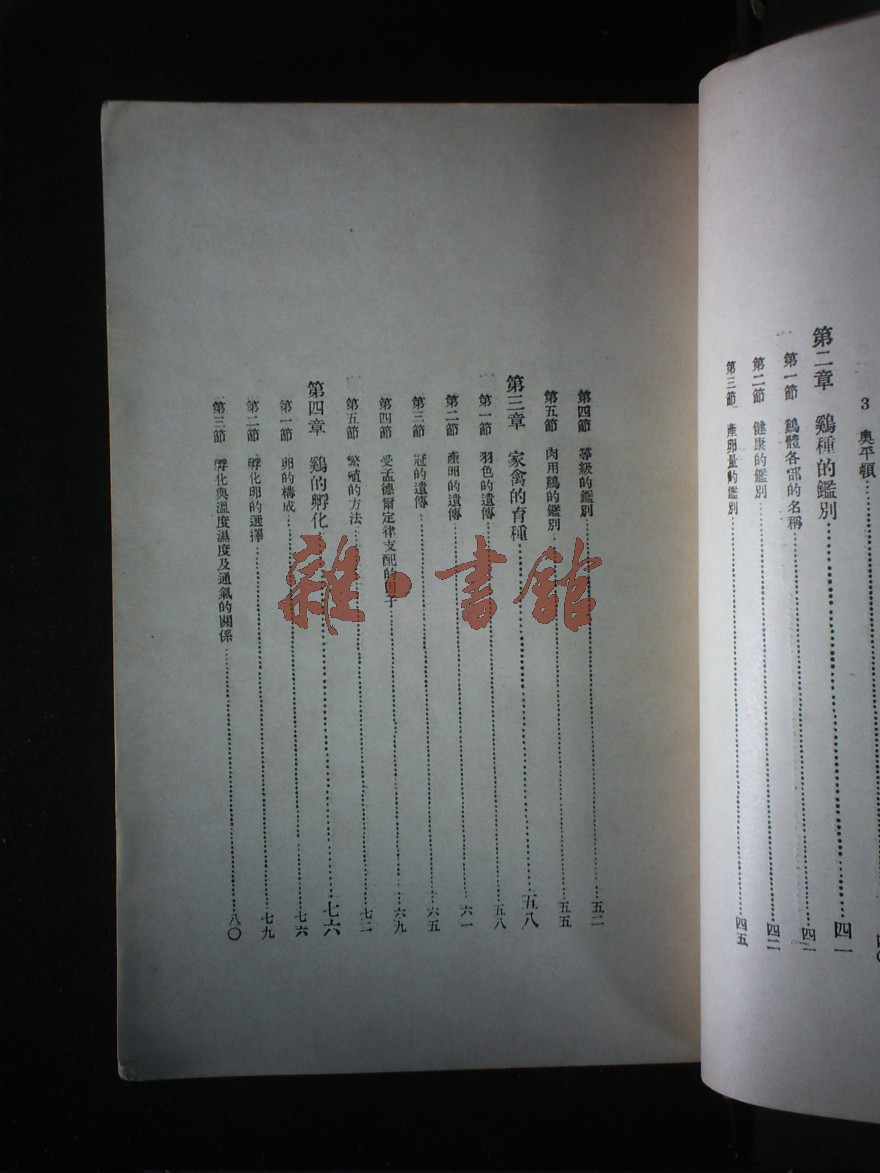 3 奥平頓……四〇
第二章 鷄種的鑑別……四一
第一節 鷄體各部的名稱……四二
第二節 健康的鑑別……四二
第三節 產卵量的鑑別……四五
第四節 等級的鑑別……五二
第五節 肉用鷄的鑑別……五五
第三章 家禽的育種……五八
第一節 羽色的遺傳……五八
第二節 產卵的遺傳……六一
第三節 冠的遺傳……六五
第四節 受孟德爾定律支配的因子……六九
第五節 繁殖的方法……七二
第四章 鷄的孵化……七六
第一節 卵的構成……七六
第二節 孵化卵的選擇……七九
第三節 孵化與溫度濕度及通氣的關係……八〇
雜·書館